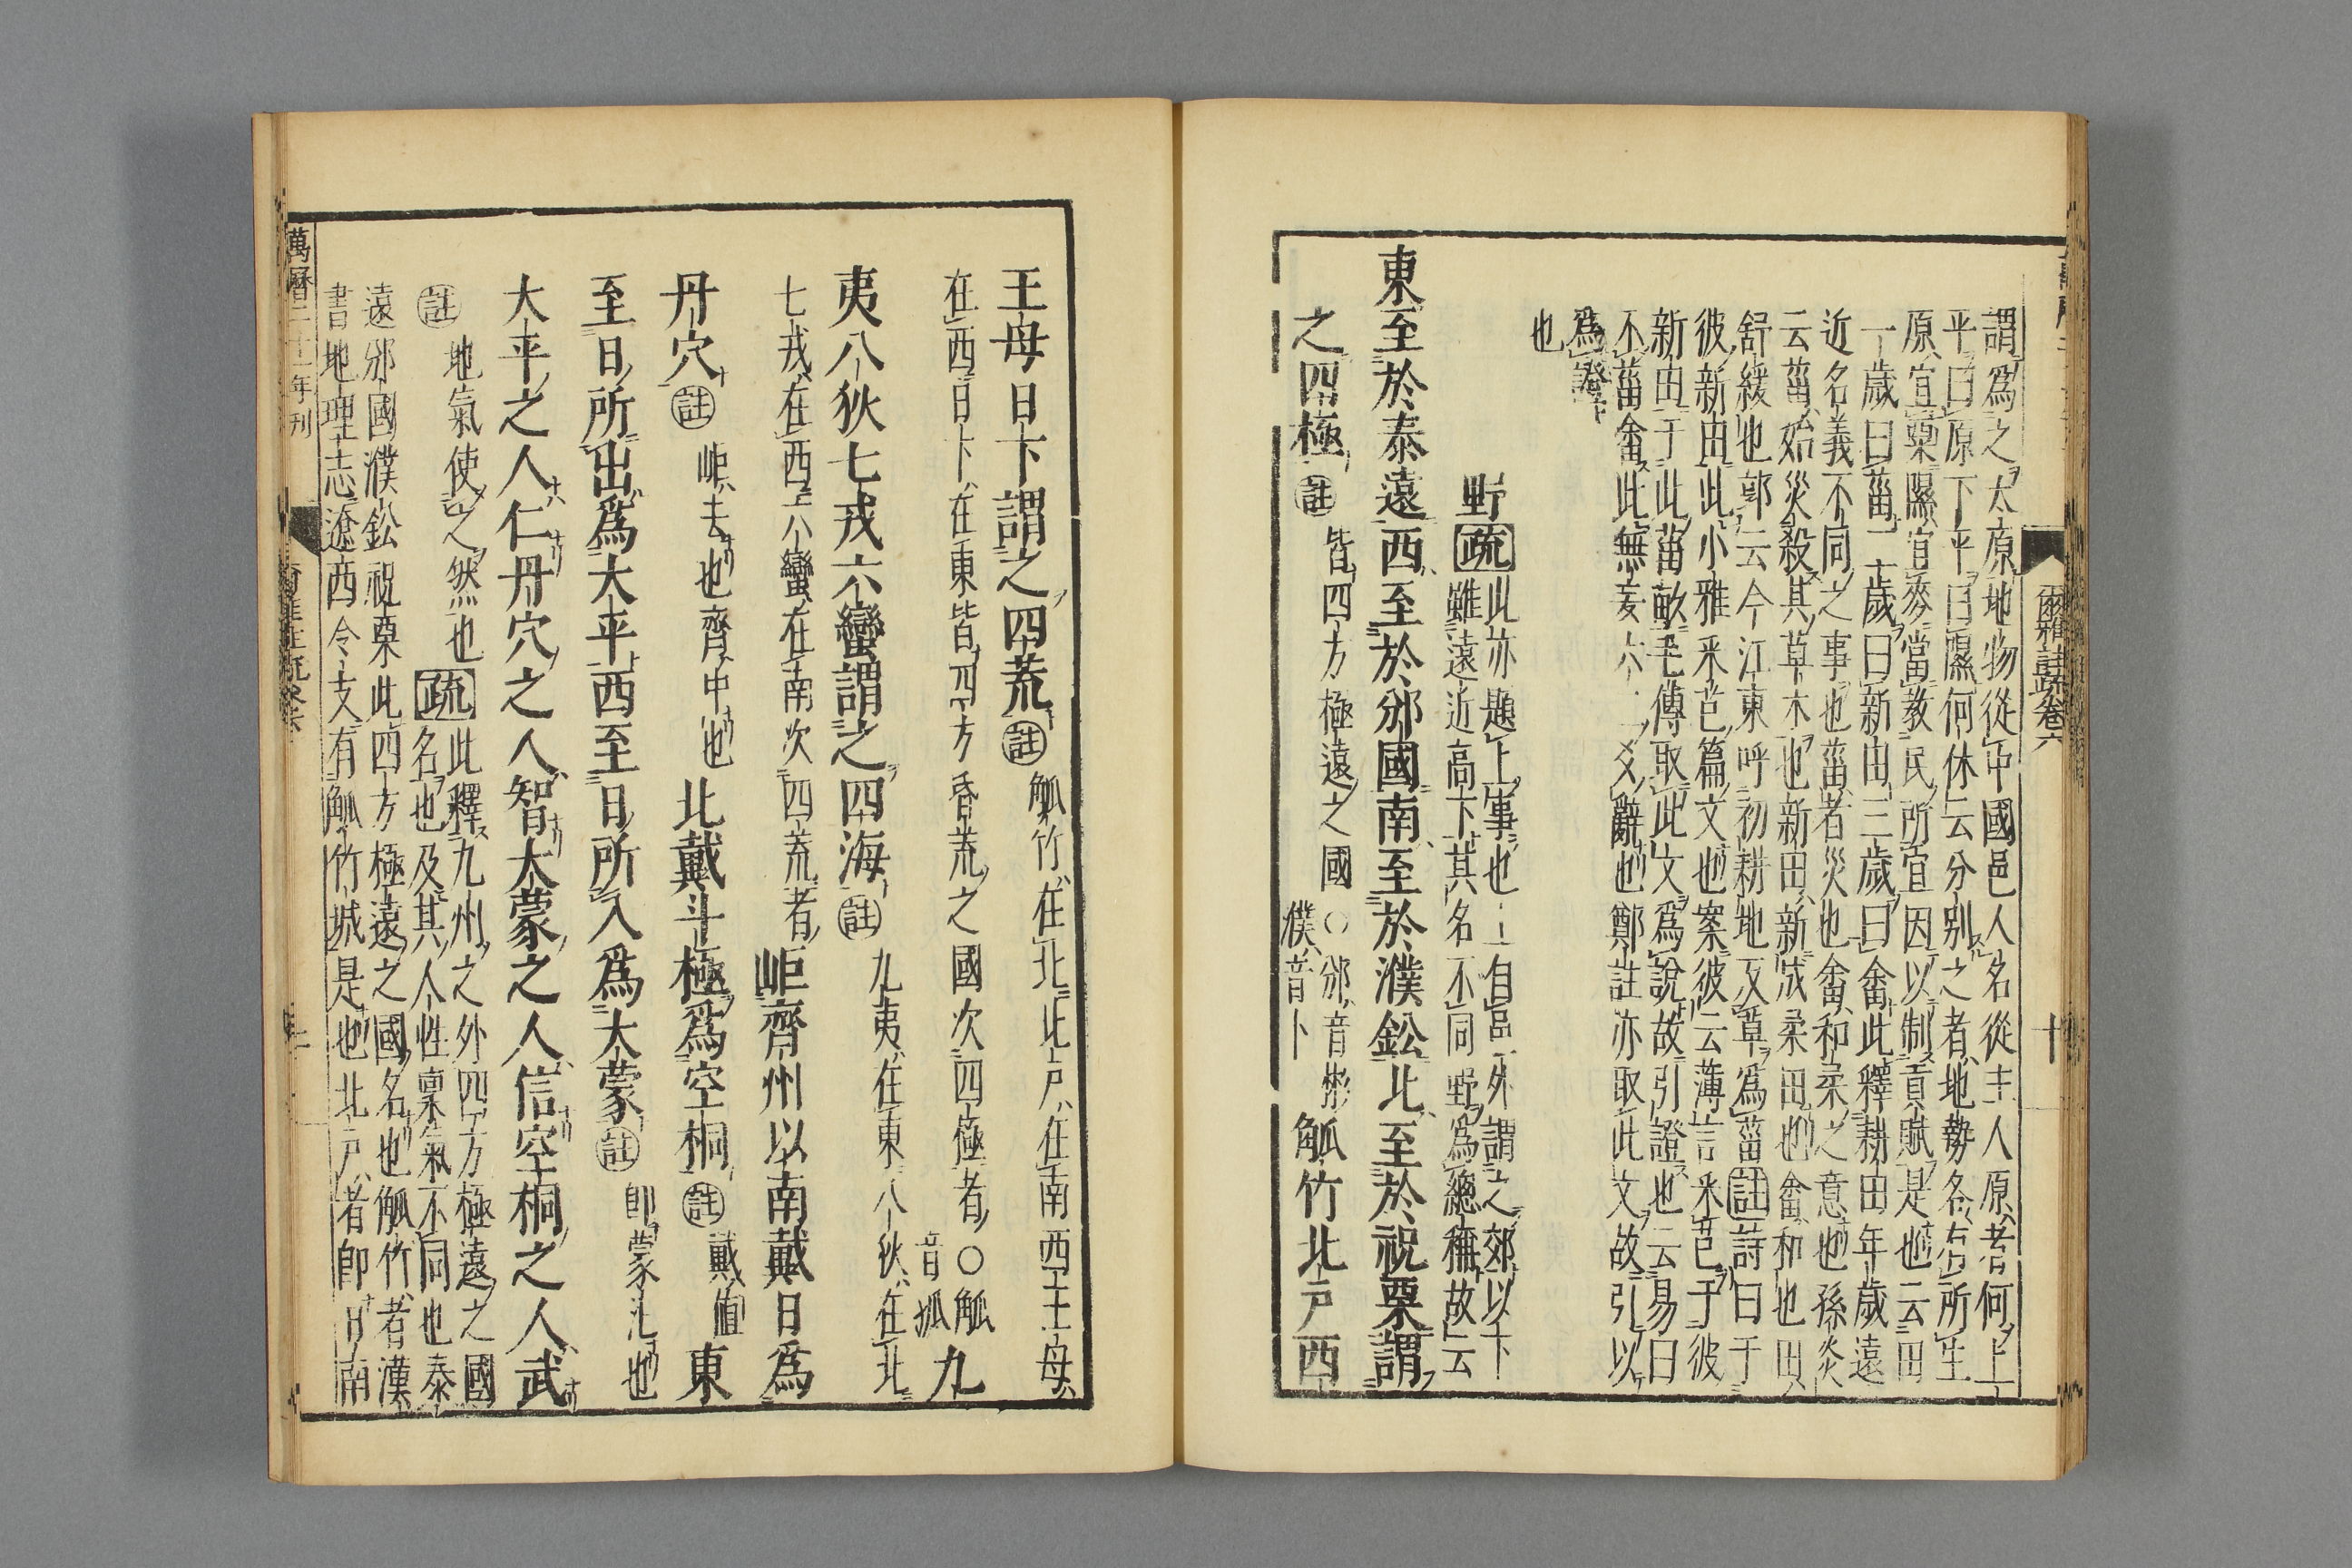 爾雅註疏卷六
十
謂爲之太原地物從中國邑人名從主人原者何上
平曰原下平曰隰何休云分別之者地勢各有所生
原宜粟隰宜麥當敎民所宜因以制貢賦是也云田
一歲曰菑二歲曰新田三歲曰畬此釋耕田年歲遠
近名義不同之事也菑者災也畬和柔之意也孫炎
云菑始災殺其草木也新田新成柔田也畬和也田
舒緩也郭云今江東呼初耕地反草爲菑註詩曰于
彼新田此小雅釆芑篇文也案彼云薄言釆芑于彼
新田于此菑畝毛傳取此文爲說故引證也云易曰
不菑畬此無妄六二爻辭也鄭註亦取此文故引以
爲證
也
野疏此亦題上事也上自邑外謂之郊以下
雖遠近高下其名不同野爲總稱故云
東至於泰遠西至於邠國南至於濮鈆北至於祝栗謂
之四極註皆四方極遠之國○邠音彬濮音卜觚竹北戸西
王母日下謂之四荒註觚竹在北北戸在南西王母
在西日下在東皆四方昏荒之國次四極者○觚音孤九
夷八狄七戎六蠻謂之四海註九夷在東八狄在北
七戎在西六蠻在南次四荒者岠齊州以南戴日爲
丹穴註岠去也齊中也北戴斗極爲空桐註戴值東
至日所出爲大平西至日所入爲大蒙註即蒙汜也
大平之人仁丹穴之人智大蒙之人信空桐之人武
註地氣使之然也疏此釋九州之外四方極遠之國
名也及其人性稟氣不同也泰
遠邠國濮鈆祝栗此四方極遠之國名也觚竹者漢
書地理志遼西令支有觚竹城是也北戸者即日南
萬曆二十一年刊
爾雅註疏卷六